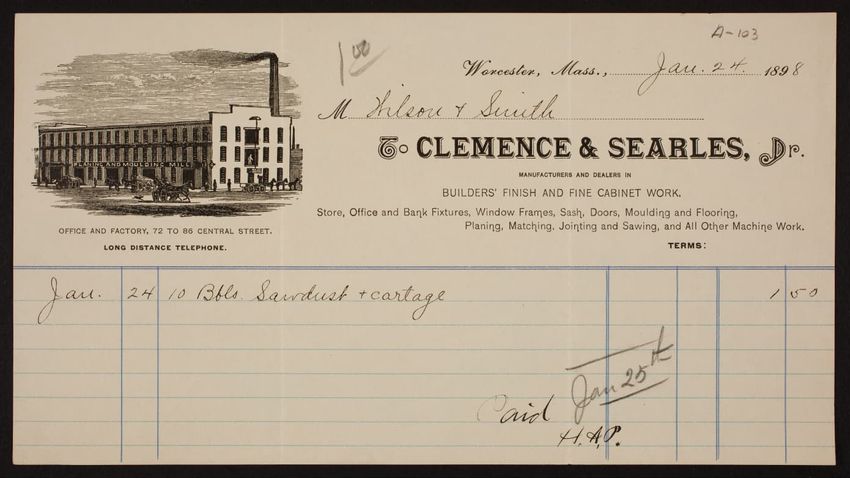 A-103
1 00
Worcester, Mass., Jan. 24. 1898
M Wilson & Smith
To CLEMENCE & SEARLES, Dr.
MANUFACTURERS AND DEALERS IN
BUILDERS' FINISH AND FINE CABINET WORK.
Store, Office and Bank Fixtures, Window Frames, Sash, Doors, Moulding and Flooring,
Planing, Matching, Jointing and Sawing, and All Other Machine Work.
TERMS:
PLANING AND MOULDING MILL
OFFICE AND FACTORY, 72 TO 86 CENTRAL STREET.
LONG DISTANCE TELEPHONE.
Jan. 24 10 Bbls. Sawdust + cartage 1 50
Paid Jan 25th
H.A.P.